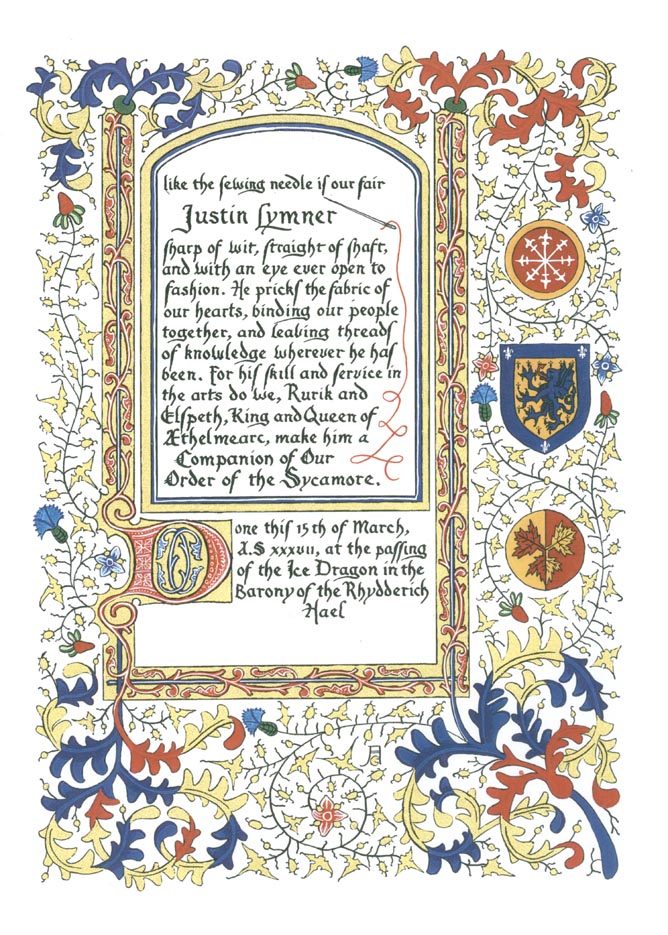 like the sewing needle is our fair
Justin Lymner
sharp of wit, straight of shaft,
and with an eye ever open to
fashion. He pricks the fabric of
our hearts, binding our people
together, and leaving threads
of knowledge wherever he has
been. For his skill and service in
the arts do we, Rurik and
Elspeth, King and Queen of
Æthelmearc, make him a
Companion of Our
Order of the Sycamore.
Done this 15th of March,
A.S xxxvii, at the passing
of the Ice Dragon in the
Barony of the Rhydderich
Hael